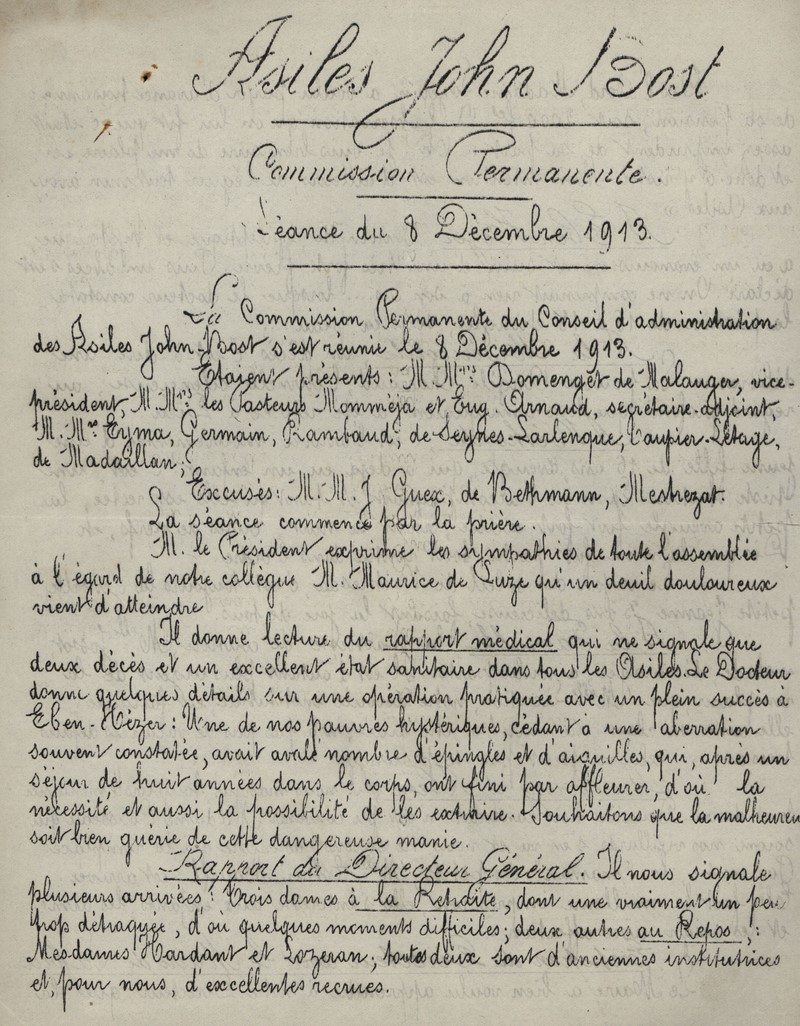 Asiles John Bost
Commission Permanente.
Séance du 8 Décembre 1913.
La Commission Permanente du Conseil d'administration
des Asiles John-Bost s'est réunie le 8 Décembre 1913.
Etaient présents : M.Mrs Domenget de Malauger, vice-
président, M.Mrs les Pasteurs Momméja et Eug. Arnaud, secrétaire-adjoint,
M.Mrs Eyma, Germain, Rambaud, de Seynes-Larlenque, Caupier-Létage,
de Madaillan ;
Excusés : M.M. J Guex, de Bethmann, Mestrezat.
La séance commence par la prière.
M. le Président exprime les sympathies de toute l'assemblée
à l'égard de notre collègue M. Maurice de Luze qu'un deuil douloureux
vient d'atteindre
Il donne lecture du rapport médical qui ne signale que
deux décès et un excellent état sanitaire dans tous les Asiles. Le Docteur
donne quelques détails sur une opération pratiquée avec un plein succès à
Eben-Hézer : Une de nos pauvres hystériques, cédant à une aberration
souvent constatée, avait avalé nombre d'épingles et d'aiguilles, qui, après un
séjour de huit années dans le corps, ont fini par affleurer, d'où la
nécessité et aussi la possibilité de les extraire. Souhaitons que la malheureu
soit bien guérie de cette dangereuse manie.
Rapport du Directeur Général. Il nous signale
plusieurs arrivées : Trois dames à la Retraite, dont une vraiment un peu
trop détraquée, d'où quelques moments difficiles ; deux autres au Repos, :
Mes-dames Hardant et Lozeran ; toutes deux sont d'anciennes institutrices
et, pour nous, d'excellentes recrues.